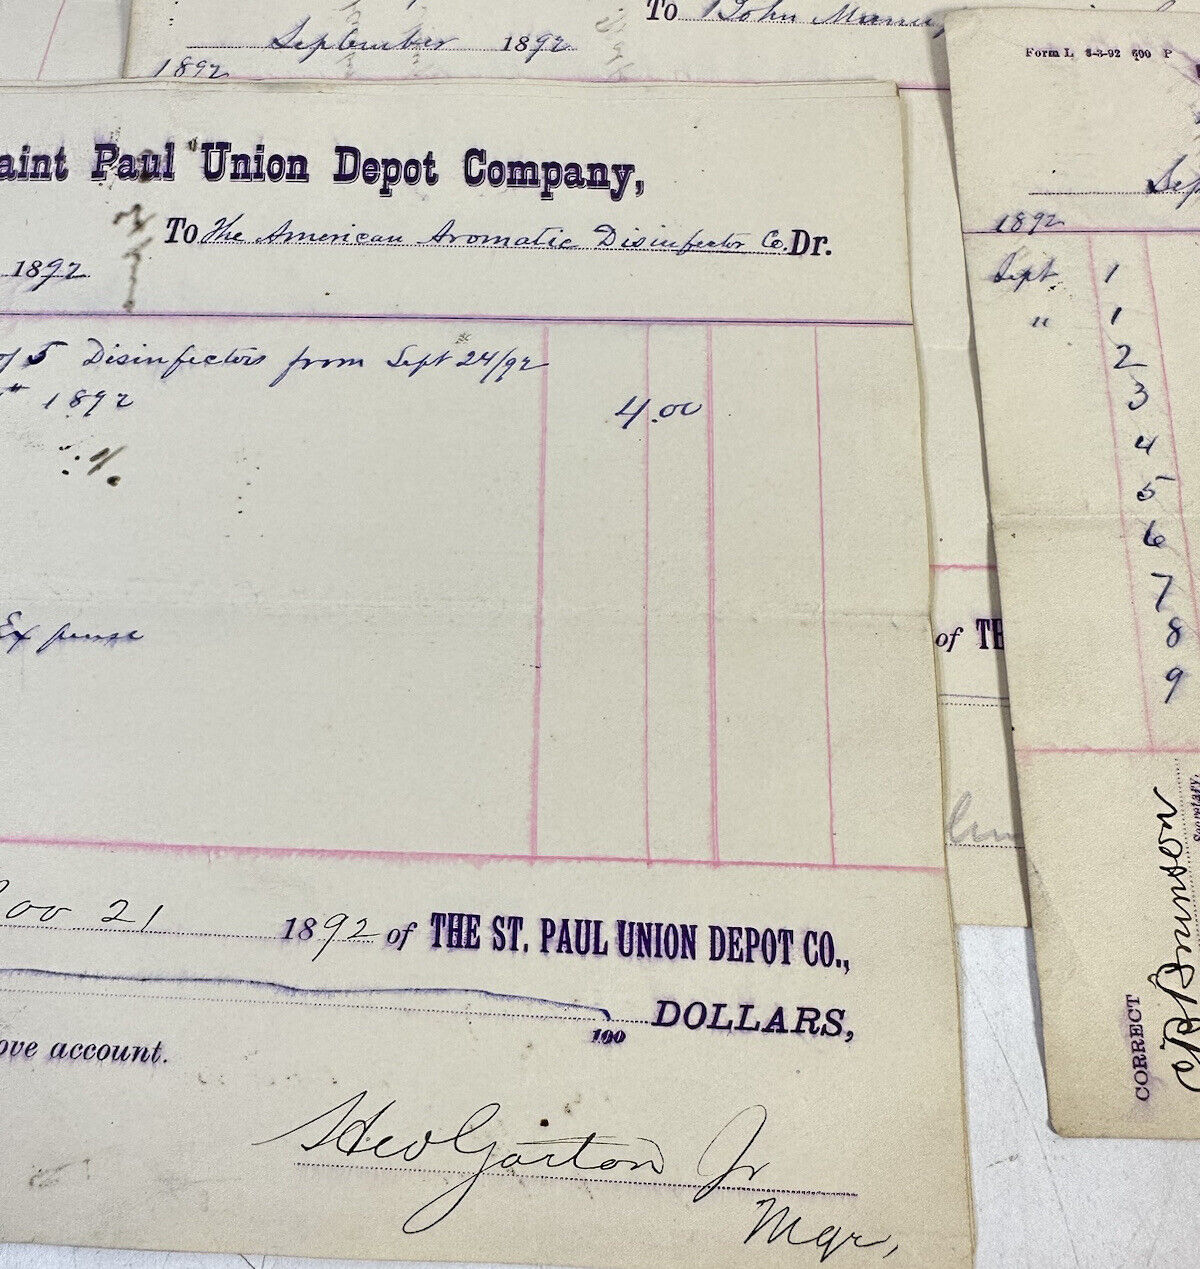 To John
September 1892
1892
Saint Paul Union Depot Company,
To The American Aromatic Disinfector Co. Dr.
1892
of 5 Disinfectors from Sept 24/92
1892
4.00
Expense
21 1892 of THE ST. PAUL UNION DEPOT CO.,
100 DOLLARS,
ove account.
Garton Jr
Mgr,
of TH
Form L 8-3-92 600 P
Sep
1892
Sept. 1
" 1
2
3
4
5
6
7
8
9
CORRECT
Secretary.